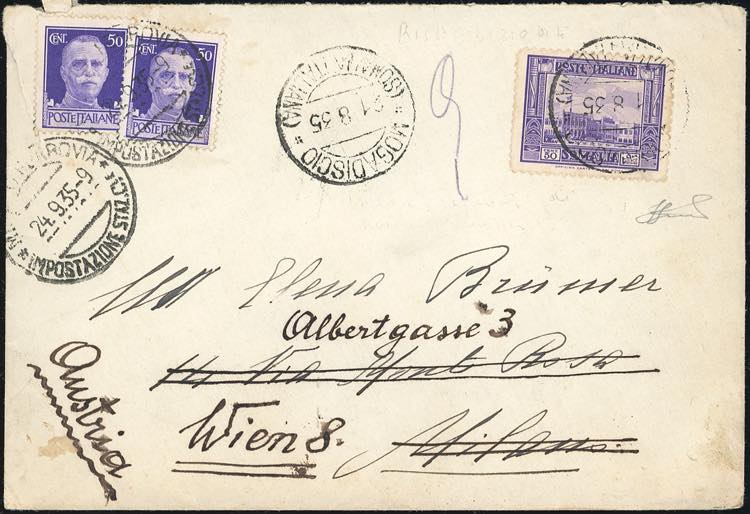 CENT. 50
POSTE ITALIANE
CENT. 50
POSTE ITALIANE
IMPOSTAZIONE
ROVIA * 24.9.35-9 * IMPOSTAZIONE
* MOGADISCIO * (SOMALIA ITALIANA)
8 35
POSTE ITALIANE
8 35
50 SOMALIA
Elena Brümer
Albertgasse 3
14 Via Monte Rosa
Wien 8. Milano
Austria